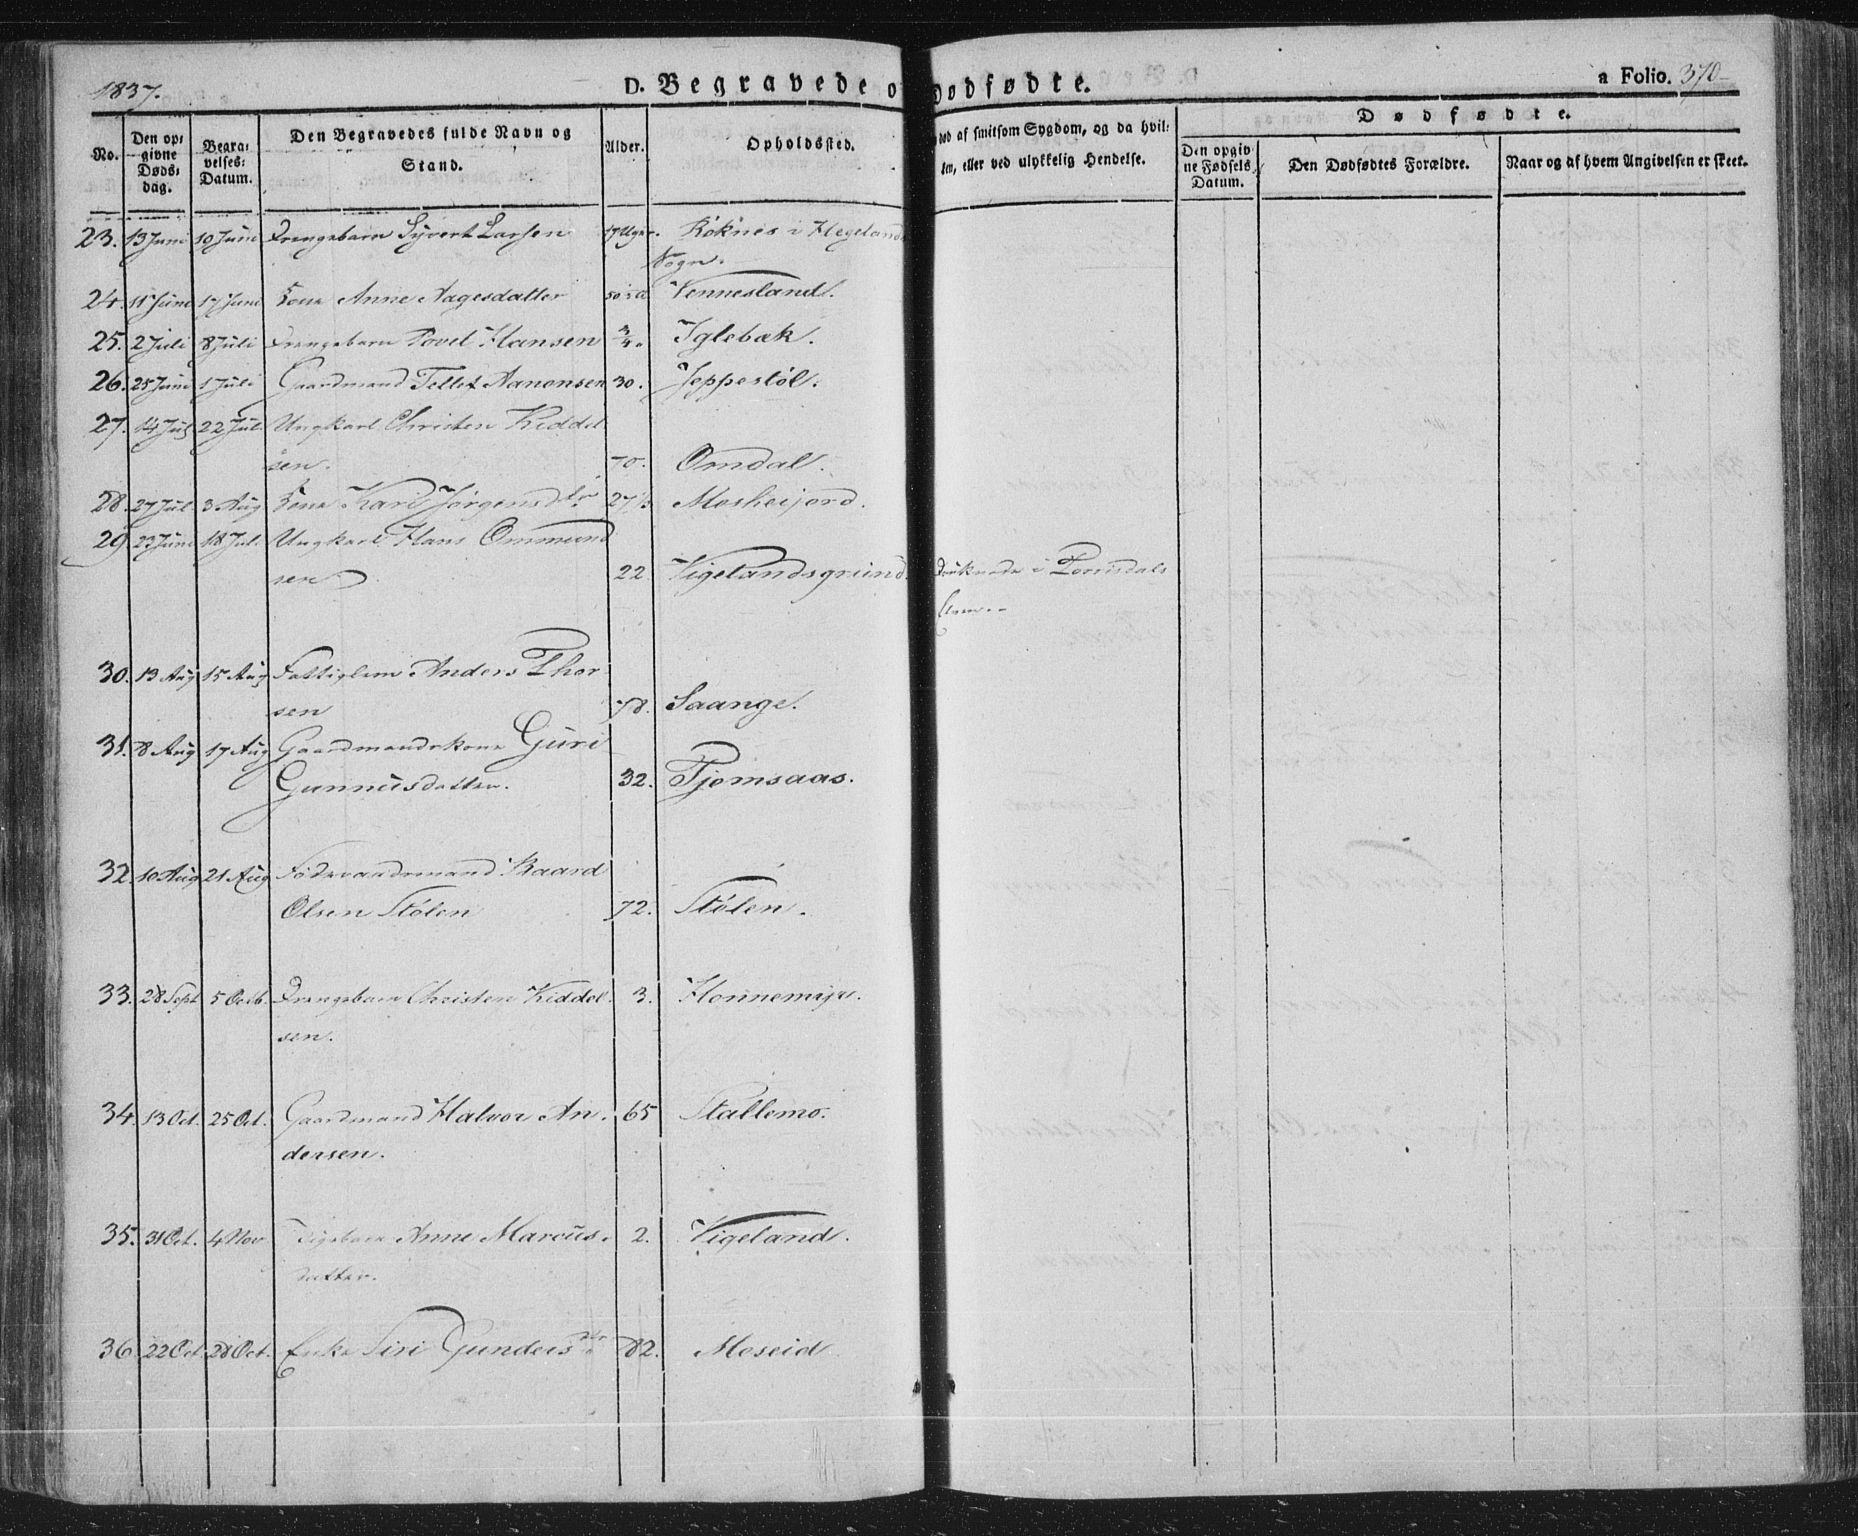 1837.
D. Begravede o Dødfødte.
a Folio. 370
No.
Den op:
givne
Døds:
dag.
Begra:
velses:
Datum.
Den Begravedes fulde Navn og
Stand.
Alder.
Opholdssted.
død af smitsom Sygdom, og da hvil:
ken, eller ved ulykkelig Hendelse.
Dødfødte.
Den opgiv:
ne Fødsels
Datum.
Den Dødfødtes Forældre.
Naar og af hvem Angivelsen er skeet.
23. 13 Juni 10 Juni Drengebarn Syvert Larsen 17 Uger. Røknes i Hegelands
Sogn.
24. 11 Juni 17 Juni Kone Anne Aagesdatter Vennesland.
25. 2 Juli 8 Juli Drengebarn Povel Hansen 3/4 Iglebæk.
26. 25 Juni 1 Juli Gaardmand Tellef Aanonsen 30. Jeppestøl.
27. 14 Jul 22 Jul Ungkarl Christen Kiddel
sen. 70. Omdal.
28. 27 Jul 3 Aug Kone Kari Jørgensdtr 27 Mosheijord.
29. 23 Juni 18 Jul. Ungkarl Hans Ommund
sen 22 Vigelandsgrund Druknede i Tomsdals
Elven.
30. 13 Aug 15 Aug Fattiglem Anders Thor
sen 78. Saange.
31. 8 Aug 17 Aug Gaardmandskone Guri
Gunnusdatter. 32. Tjomsaas.
32. 10 Aug 21 Aug Føderaadsmand Baard
Olsen Stølen 72. Stølen.
33. 28 Sept 5 Octb. Drengebarn Christen Kiddel 3. Honnemyr.
sen.
34. 13 Oct. 25 Oct. Gaardmand Halvor An 65 Stallemo.
dersen.
35. 31 Oct. 4 Nov Pigebarn Anne Marcus 2. Vigeland.
datter.
36. 22 Oct 28 Oct. Enke Siri Gundersdtr 82. Moseid